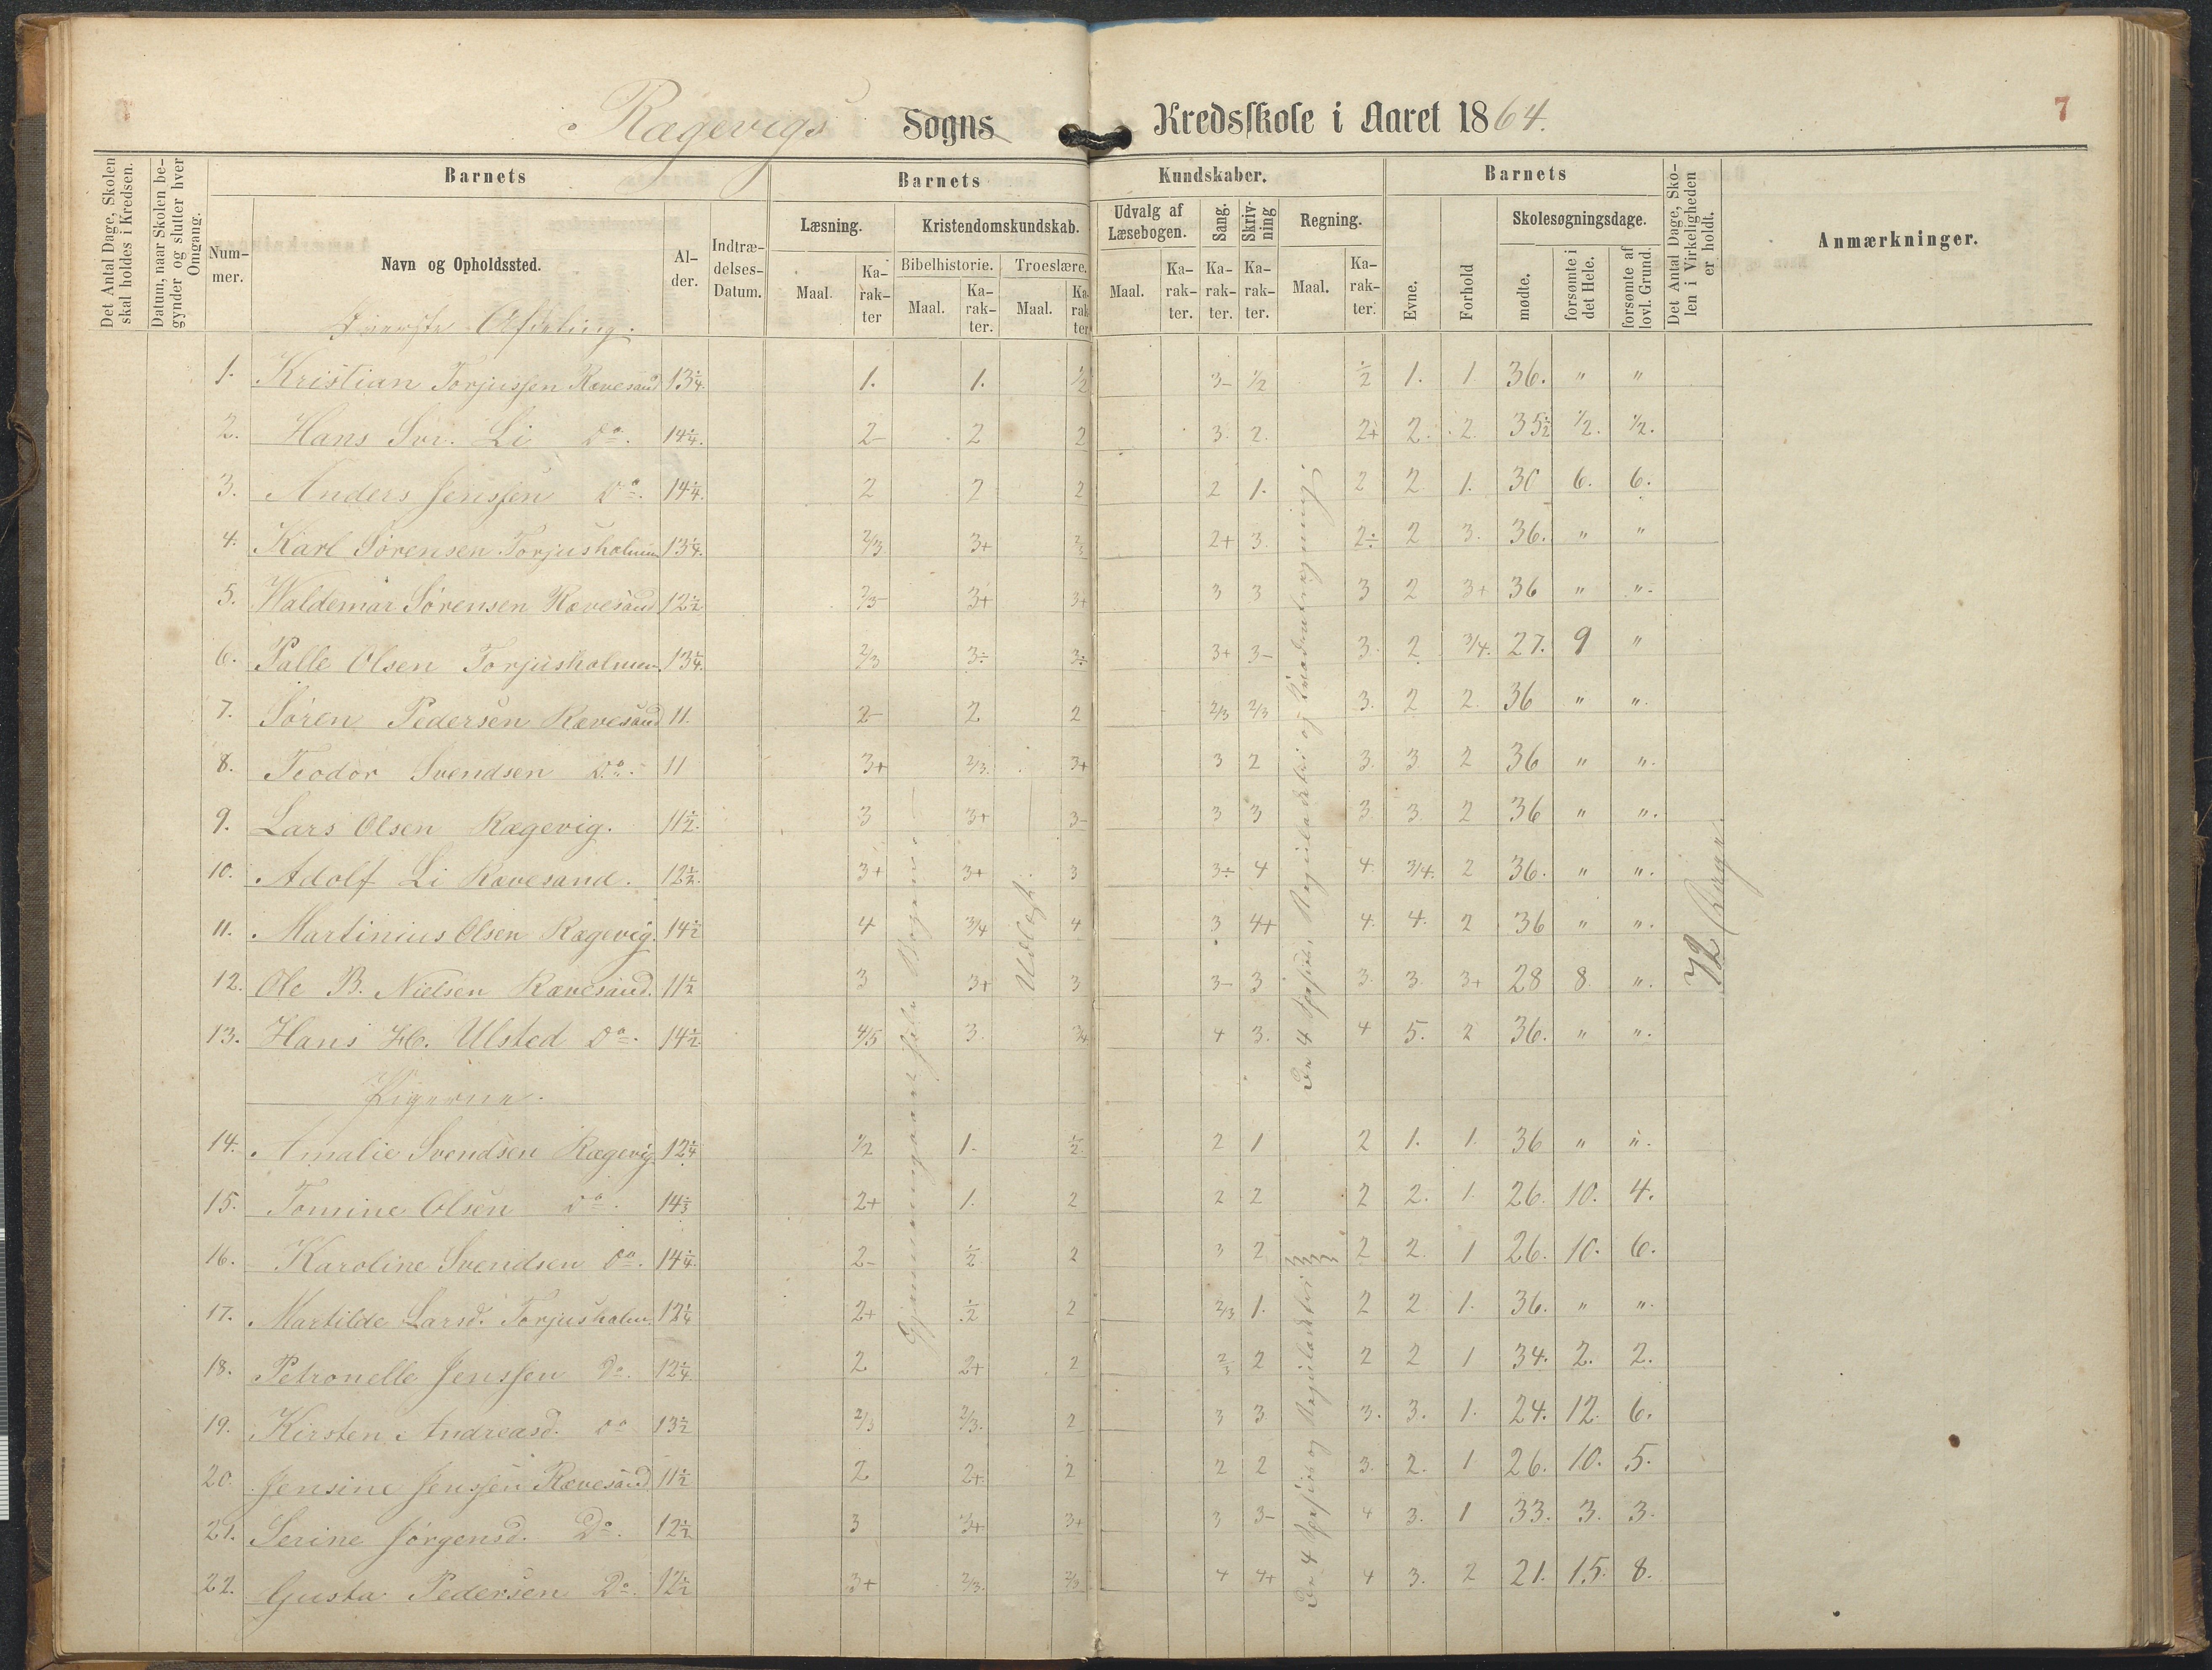 Rægevigs Sogns Kredsskole i Aaret 1864.
7
Det Antal Dage, Skolen skal holdes i Kredsen.
Datum, naar Skolen begynder og slutter hver Omgang.
Barnets
Nummer.
Navn og Opholdssted.
Alder.
Indtrædelses-Datum.
Barnets Kundskaber.
Læsning.
Maal.
Karakter
Kristendomskundskab.
Bibelhistorie.
Maal.
Karakter.
Troeslære.
Maal.
Karakter
Udvalg af Læsebogen.
Maal.
Karakter.
Sang.
Karakter.
Skrivning
Karakter.
Regning.
Maal.
Karakter.
Barnets
Evne.
Forhold
Skolesøgningsdage.
mødte.
forsømte i det Hele.
forsømte af lovl. Grund.
Det Antal Dage, Skolen i Virkeligheden er holdt.
Anmærkninger.
Øverste Afdeling.
1. Kristian Torjussen Rævesand 13¼. 1. 1. ½ 3- ½ ½ 1. 1 36. " "
2. Hans Svr. Li Do. 14¼. 2- 2 2 3. 2. 2+ 2. 2. 35½ ½. ½.
3. Anders Jenssen Do. 14¼. 2 2 2 2 1. 2 2 1. 30 6. 6.
4. Karl Sørensen Torjusholmen 13¼. 2/3 3+ 2/3 2+ 3. 2÷ 2 3. 36. " "
5. Waldemar Sørensen Rævesand 12½ 2/3- 3+ 3+ 3 3 3 2 3+ 36 " "
6. Palle Olsen Torjusholmen 13¼. 2/3 3÷ 3÷ 3+ 3- 3. 2 3/4. 27. 9 "
7. Søren Pedersen Rævesand 11. 2- 2 2 2/3 2/3 3. 2 2. 36 " "
8. Teodor Svendsen Do. 11 3+ 2/3. 3+ 3 2 3. 3 2 36 " "
9. Lars Olsen Rægevig. 11½. 3 3+ 3- 3 3 3. 3 2 36 " "
10. Adolf Li Rævesand. 12½. 3+ 3+ 3 3÷ 4 4. 3/4. 2 36. " "
11. Martinius Olsen Rægevig. 14½ 4 3/4 4 3 4+ 4. 4. 2 36 " "
12. Ole B. Nielsen Rævesand. 11½ 3 3+ 3 3- 3 3. 3. 3+ 28 8 "
13. Hans H. Ulsted Do. 14½ 4/5 3. 3/4 4 3. 4 5. 2 36. " "
Pigerne.
14. Amalie Svendsen Rægevig 12¼ ½ 1. ½ 2 1 2 1. 1. 36 " "
15. Tomine Olsen Do. 14⅓ 2+ 1. 2 2 2 2 2. 1. 26. 10. 4.
16. Karoline Svendsen Do. 14¼. 2- ½ 2 3 2 2 2. 1 26. 10. 6.
17. Martilde Larsd. Torjusholm. 12¼ 2+ ½ 2 2/3 1. 2 2 1. 36. " "
18. Petronelle Jenssen Do. 12¼. 2 2+ 2 2/3 2 2 2 1 34. 2. 2.
19. Kirsten Andreasd. Do 13½ 2/3 2/3. 2 3 3 3. 3. 1. 24. 12. 6.
20. Jensine Jenssen Rævesand 11½ 2 2+ 2 2 2 3. 2. 1 26. 10. 5.
21. Serine Jørgensd. Do. 12½ 3 3+ 3+ 3 3- 4 3. 1 33. 3. 3.
22. Gusta Pedersen Do. 12½ 3+ 2/3. 2/3 4 4+ 4 3. 2 21. 15. 8.
Gjennemgaaet hele Bogen
Udlagt.
De 4 Spesies, Reguladetri og
De 4 Spesies og Reguladetri
72 Dage